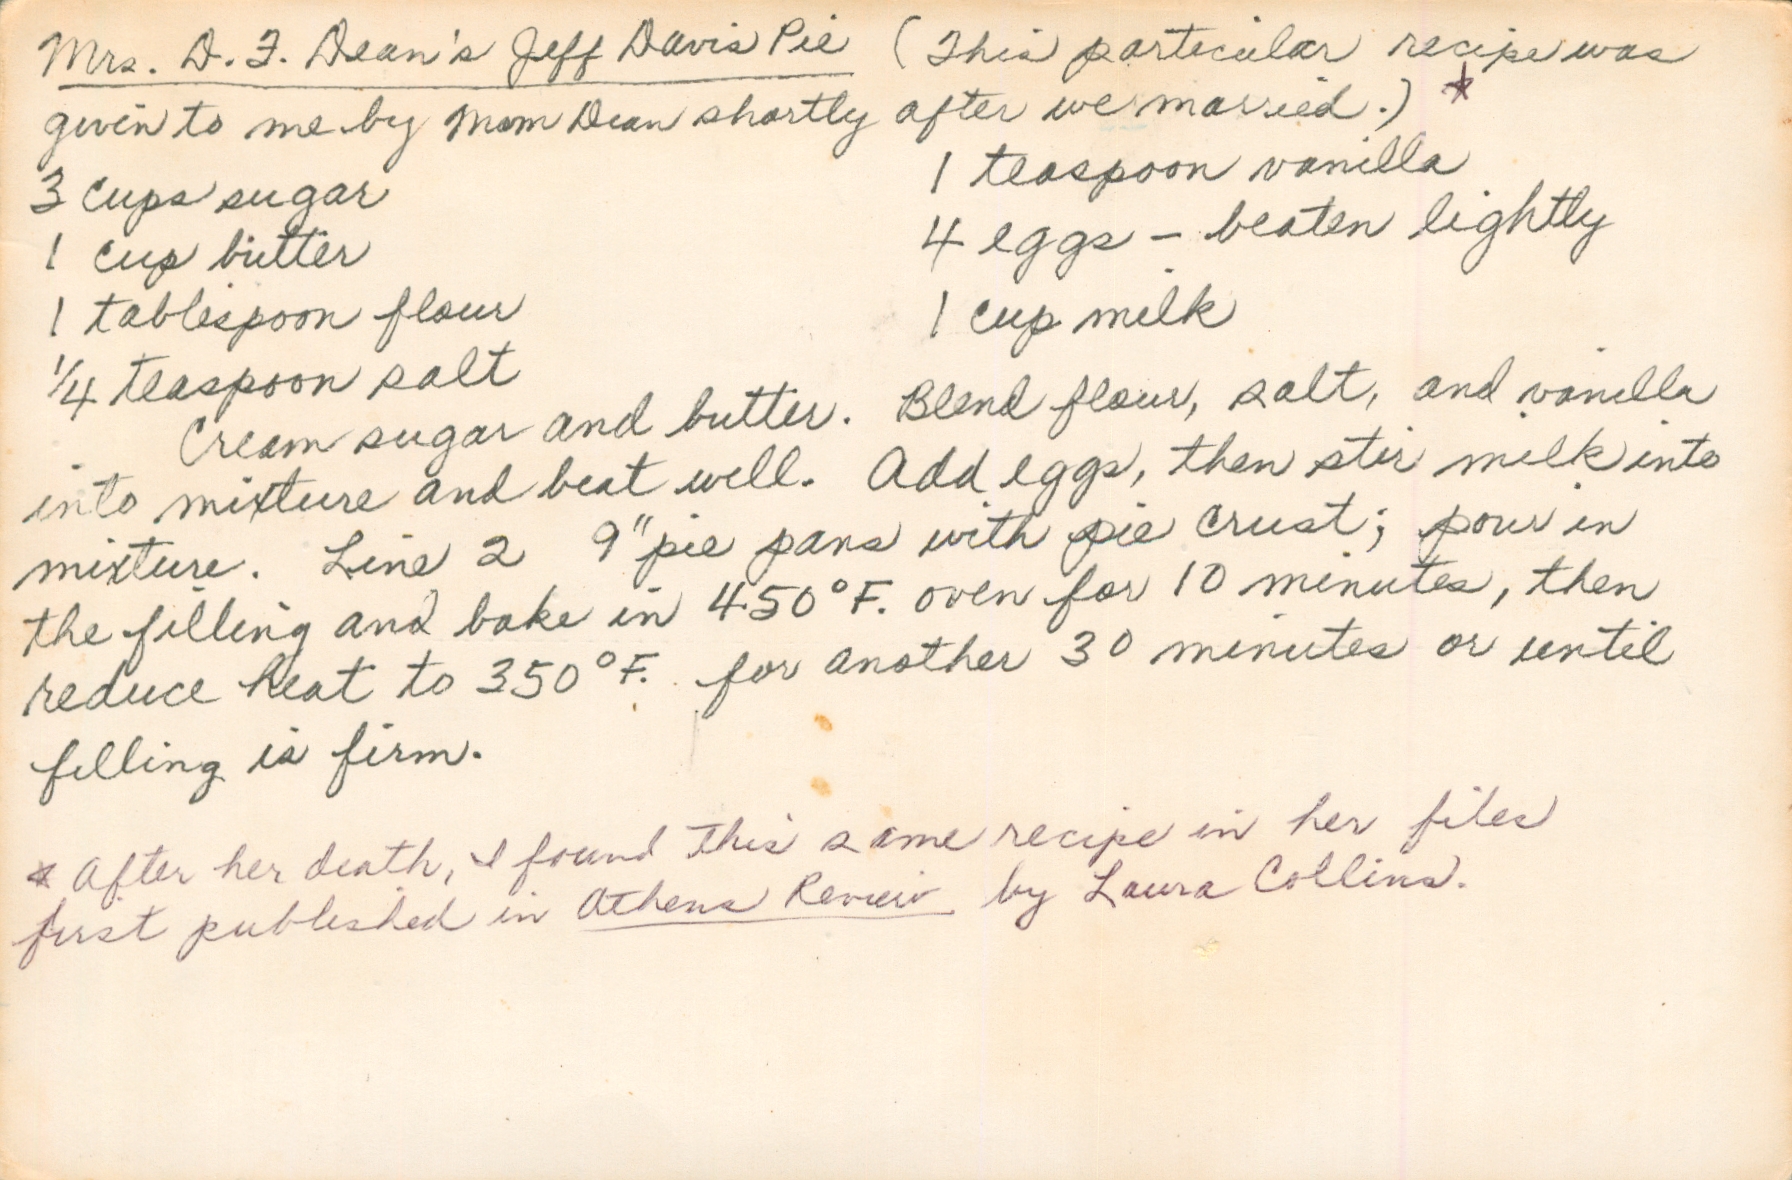 Mrs. D. F. Dean's Jeff Davis Pie (This particular recipe was
given to me by Mom Dean shortly after we married.) *
3 cups sugar
1 cup butter
1 tablespoon flour
1/4 teaspoon salt
1 teaspoon vanilla
4 eggs – beaten lightly
1 cup milk
Cream sugar and butter. Blend flour, salt, and vanilla
into mixture and beat well. Add eggs, then stir milk into
mixture. Line 2 9" pie pans with pie crust; pour in
the filling and bake in 450°F. oven for 10 minutes, then
reduce heat to 350°F. for another 30 minutes or until
filling is firm.
* After her death, I found this same recipe in her files
first published in Athens Review by Laura Collins.